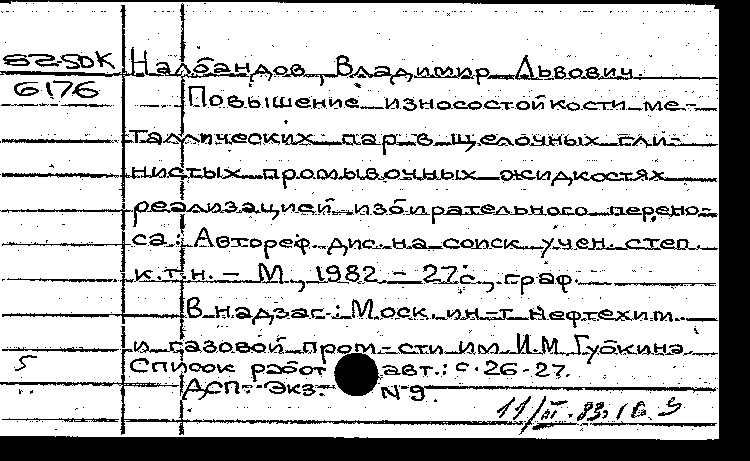 82-5DK
6176
Налбандов, Владимир Львович.
Повышение износостойкости ме-
таллических пар в щелочных гли-
нистых промывочных жидкостях
реализацией избирательного перено-
са: Автореф. дис. на соиск учен. степ.
к.т.н. - М, 1982 - 27с., граф.
В надзаг.: Моск. ин-т нефтехим.
и газовой пром-сти им. И.М Губкина.
Список работ авт.: с. 26-27.
ДСП. Экз. N 9.
5
11/III.83.